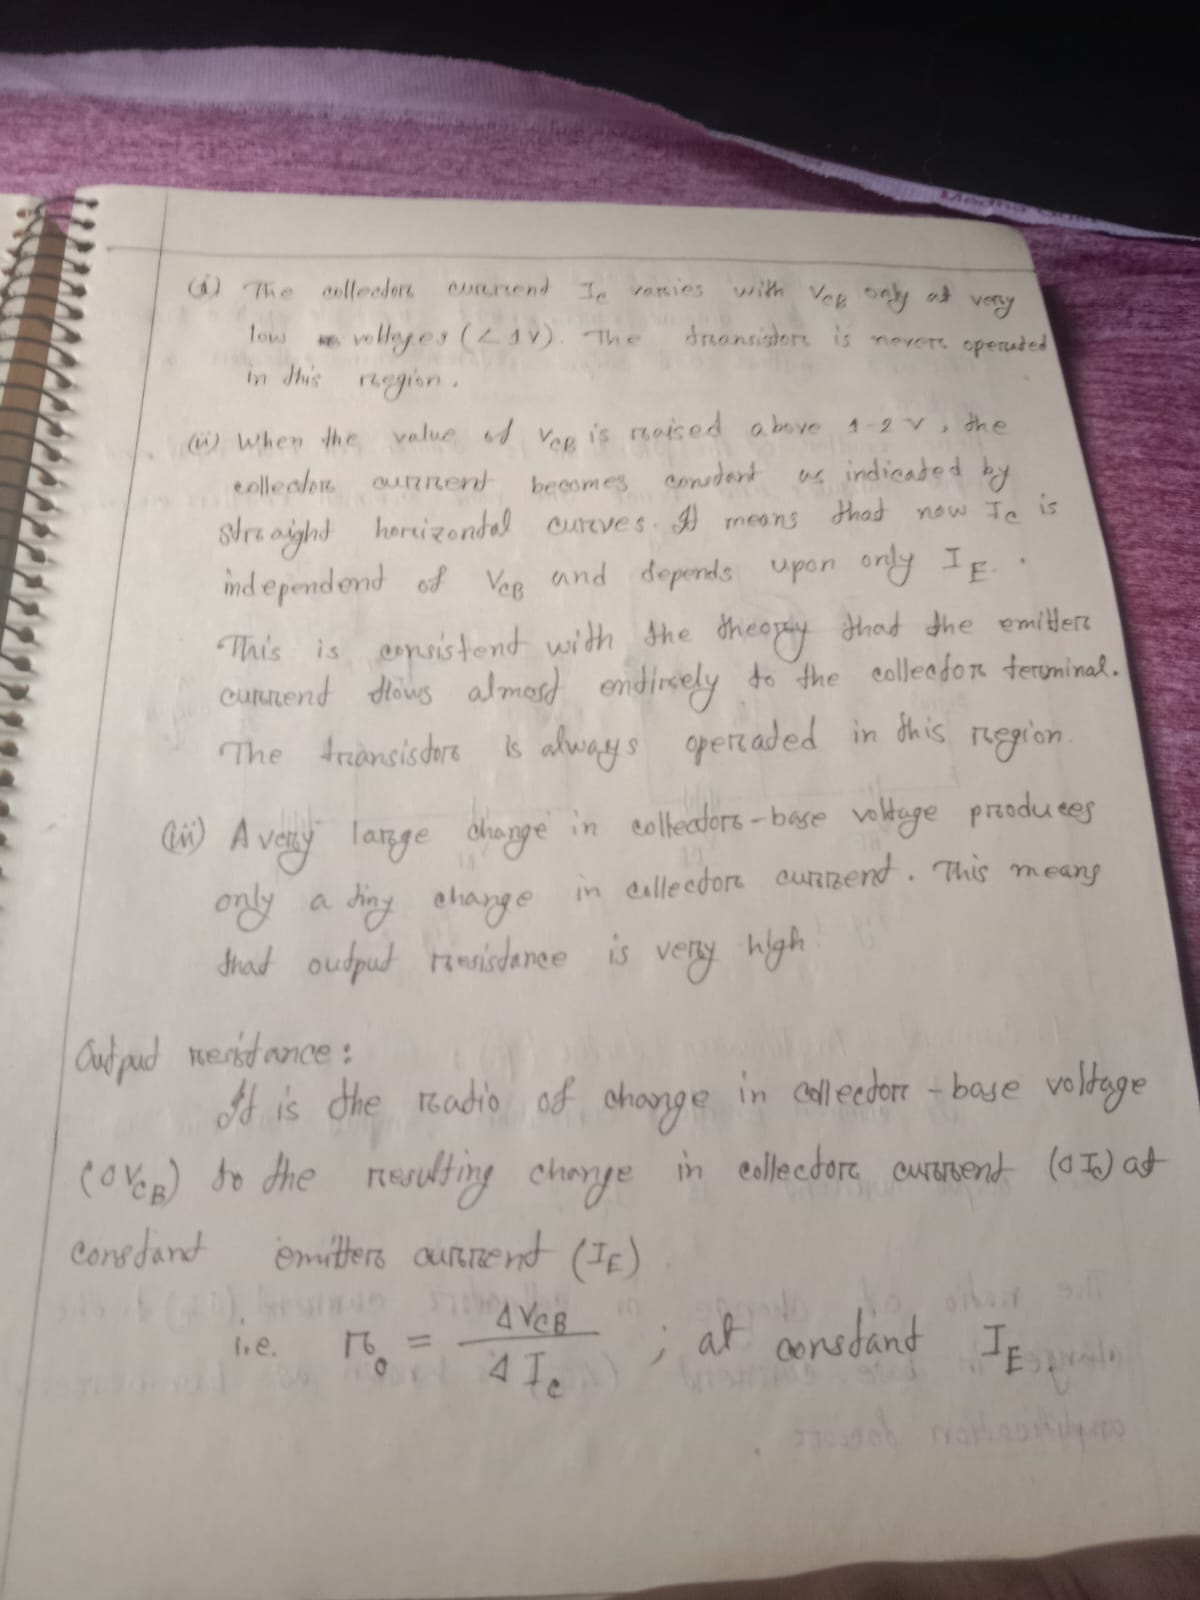 (i) The collector current Ic varies with VCB only at very
low voltages (< 1V). The transistor is never operated
in this region.
(ii) When the value of VCB is raised above 1-2 V, the
collector current becomes constant as indicated by
straight horizontal curves. It means that now Ic is
independent of VCB and depends upon only IE.
This is consistent with the theory that the emitter
current flows almost entirely to the collector terminal.
The transistor is always operated in this region.
(iii) A very large change in collector-base voltage produces
only a tiny change in collector current. This means
that output resistance is very high!
Output resistance:
It is the ratio of change in collector-base voltage
(ΔVCB) to the resulting change in collector current (ΔIc) at
constant emitter current (IE).
i.e. ro = ΔVCB / ΔIc ; at constant IE